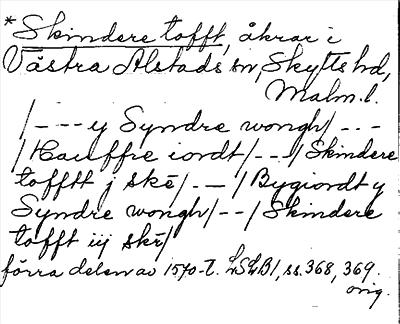 *Skindere tofft, åkrar i
Västra Alstads sn, Skytts hd,
Malm. l.
/--- y Syndre wongh/ ---
/Hauffre iordt/---/Skindere
tofftt j skē/.--/Bygiordt y
Syndre wongh/--/Skindere
tofft iij skē/
förra delen av 1570-t. LSLB1, ss. 368, 369.
orig.